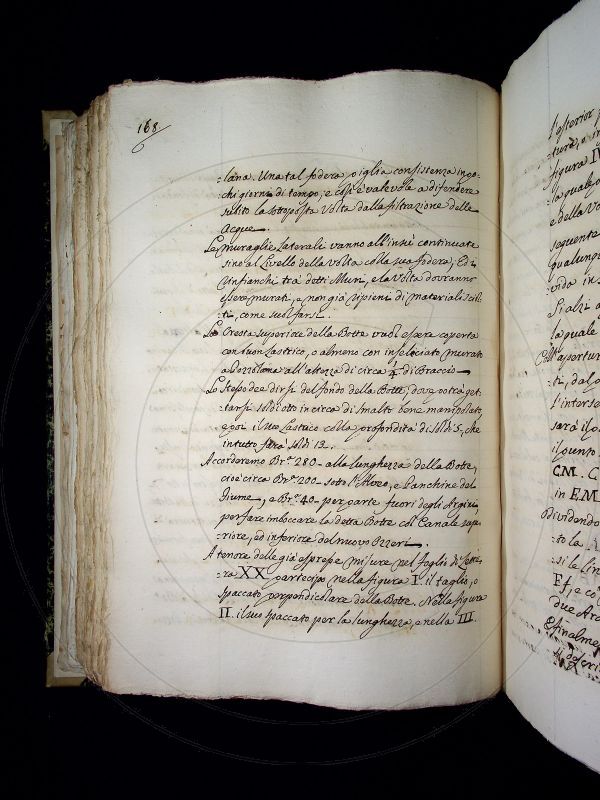 168
-lana. Una tal fodera piglia consistenza in po-
-chi giorni di tempo, e così è valevole a difendere
subito la sottoposta Volta dalla filtrazione delle
Acque.
Le muraglie Laterale vanno all'insù continuate
sino al Livello della Volta colla sua fodera; Ed i
Rinfianchi trà detti Muri, e la Volta dovranno
essere murati, e non già ripieni di materiali sciol-
-ti, come suol farsi.
La Cresta superiore della Botte vuol essere coperta
con buon Lastrico, o almeno con inselciato murato
a Pozzolana all'altezza di circa 1/4 di Braccio.
Lo stesso dee dirsi del fondo della Botte, dove potrà get-
-tarsi soldi otto in circa di smalto bene manipolato,
e poi il suo Lastrico colla profondità di soldi 5, che
in tutto farà soldi 13.
Accorderemo Br.ª 280 alla lunghezza della Botte,
cioè circa Br.ª 200 sotto l'Alveo, e Panchine del
fiume, e Br.ª 40 per parte fuori degli Argini,
per fare imboccare la detta Botte col Canale supe-
-riore, ed inferiore del nuovo Ozzeri.
A tenore delle già espresse misure nel foglio di Lette-
-ra XX partecipo nella figura I il taglio, o
spaccato perpendicolare della Botte. Nella figura
II il suo spaccato per la lunghezza, e nella III
l'esterior
figura IV
la quale
e della Vo
seguente
qualung
vido in s
Si alzi a
la quale
-ti, dal
l'interse
sarà il p
il punto
CM. C
in E.M
Dividendo
-to la
si le Lin
due Ar
E finalme